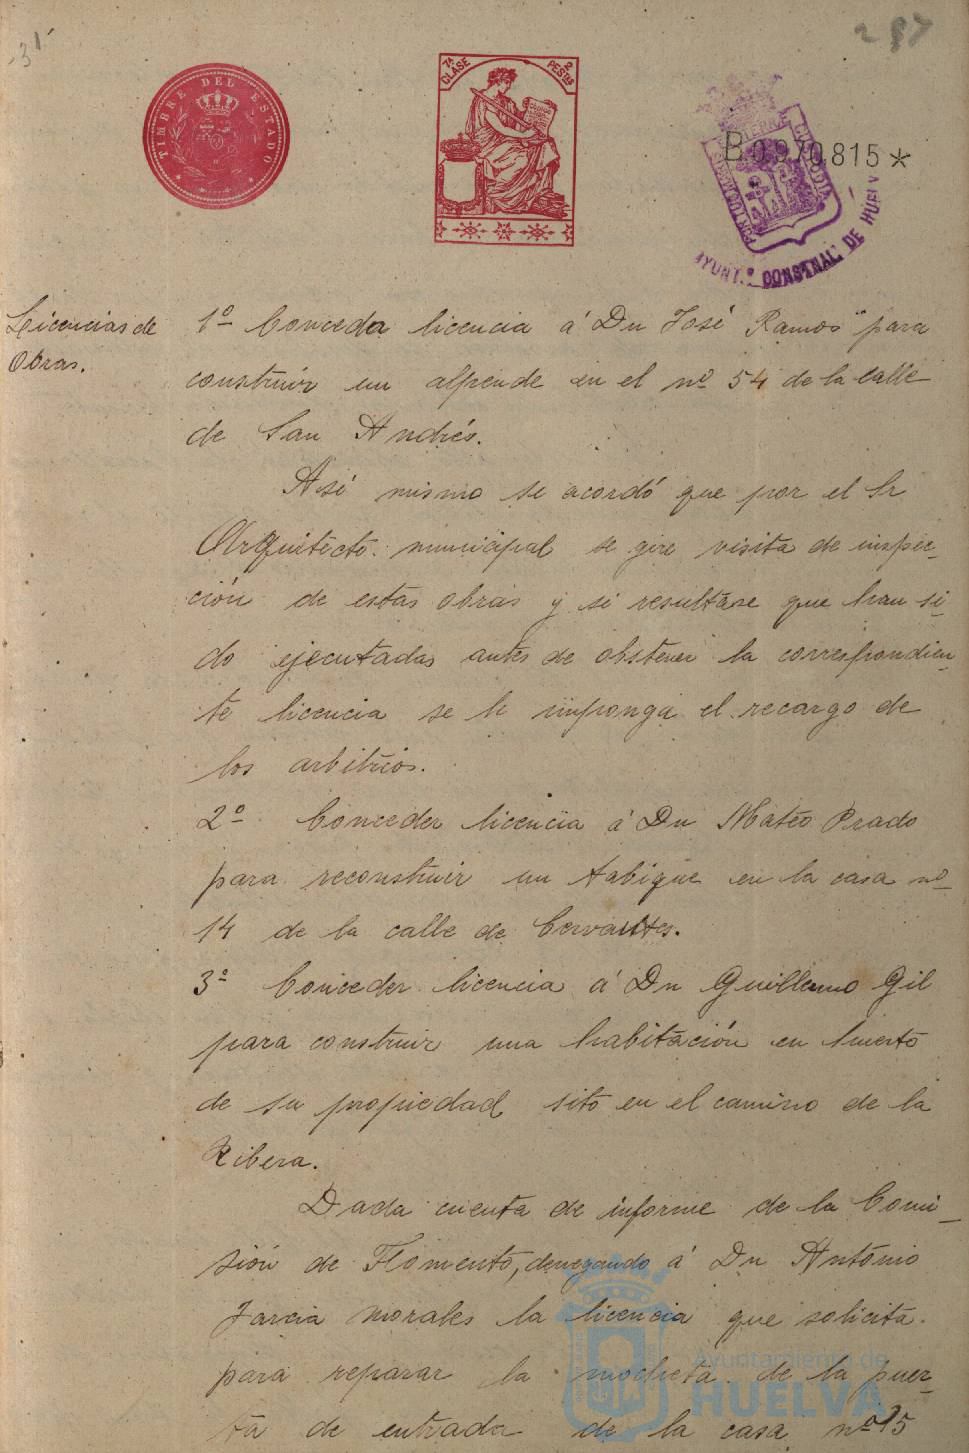 31
297
TIMBRE DEL ESTADO
7ª CLASE 2 PESTAS
B0.970.815*
AYUNTº CONSTNAL DE HUELV
Licencias de
Obras.
1º Conceda licencia á Dn José Ramos para
construir un alpende en el nº 54 de la calle
de San Andrés.
Asi mismo se acordó que por el Sr
Arquitecto municipal se gire visita de inspec-
ción de estas obras y si resultase que han si-
do ejecutadas antes de obstener la correspondien-
te licencia se le imponga el recargo de
los arbitrios.
2º Conceder licencia á Dn Mateo Prado
para reconstruir un tabique en la casa nº
14 de la calle de Cervantes.
3º Conceder licencia á Dn Guillermo Gil
para construir una habitación en huerto
de su propiedad sito en el camino de la
Ribera.
Dada cuenta de informe de la Comi-
sión de Fomento, denegando á Dn António
Garcia Morales la licencia que solicita
para reparar la mocheta de la puer-
ta de entrada de la casa nº 15
Ayuntamiento de
HUELVA